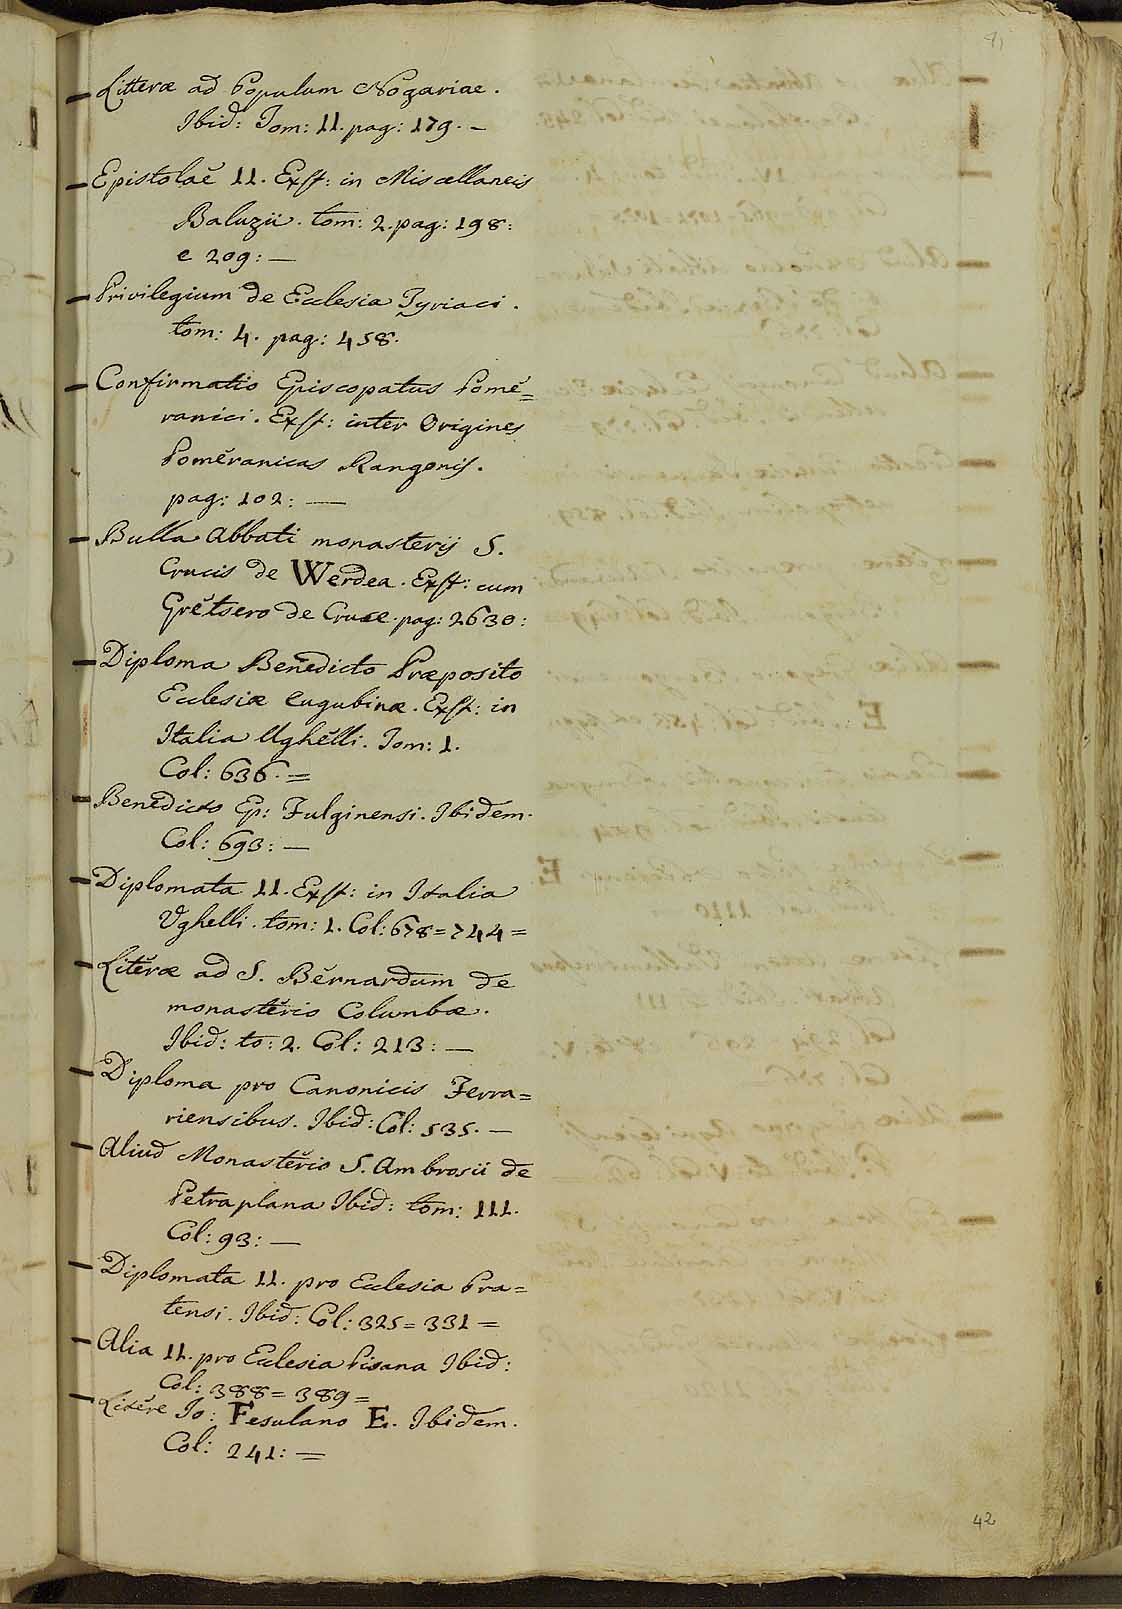 Litteræ ad Populum Nogariae.
Ibid: Tom: II. pag: 179. –
Epistolæ II. Exst: in Miscellaneis
Baluzii. tom: 2. pag: 198:
e 209: —
Privilegium de Ecclesia Tyriaci.
tom: 4. pag: 458.
Confirmatio Episcopatus Pome=
ranici. Exst: inter Origines
Pomeranicas Rangonis.
pag: 102: —
Bulla Abbati monasterij S.
Crucis de Werdea. Exst: cum
Gretsero de Cruce. pag: 2630:
Diploma Benedicto Præposito
Ecclesiæ Eugubinæ. Exst: in
Italia Ughelli. Tom: I.
Col: 636. =
Benedicto Ep: Fulginensi. Ibidem.
Col: 693: —
Diplomata II. Exst: in Italia
Ughelli. tom: I. Col: 678 = 744 =
Literæ ad S. Bernardum de
monasterio Columbæ.
Ibid: to: 2. Col: 213: —
Diploma pro Canonicis Ferra=
riensibus. Ibid: Col: 535. —
Aliud Monasterio S. Ambrosii de
Petraplana Ibid: tom: III.
Col: 93: —
Diplomata II. pro Ecclesia Pra=
tensi. Ibid: Col: 325 = 331 =
Alia II. pro Ecclesia Pisana Ibid:
Col: 388 = 389 =
Litere Jo: Fesulano E. Ibidem.
Col: 241: =
42